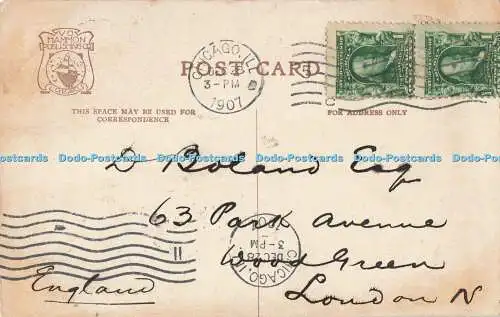 V.O.
HAMMON
PUBLISHING CO.
CHICAGO
POST CARD
CHICAGO, ILL
3-PM
1907
THIS SPACE MAY BE USED FOR
CORRESPONDENCE
FOR ADDRESS ONLY
Dodo-Postcards Dodo-Postcards Dodo-Postcards Dodo-Postcards Dodo-Postcards
D Boland Esq
63 Park Avenue
Wood Green
London N
England
CHICAGO, ILL
DEC 28
3-PM
11